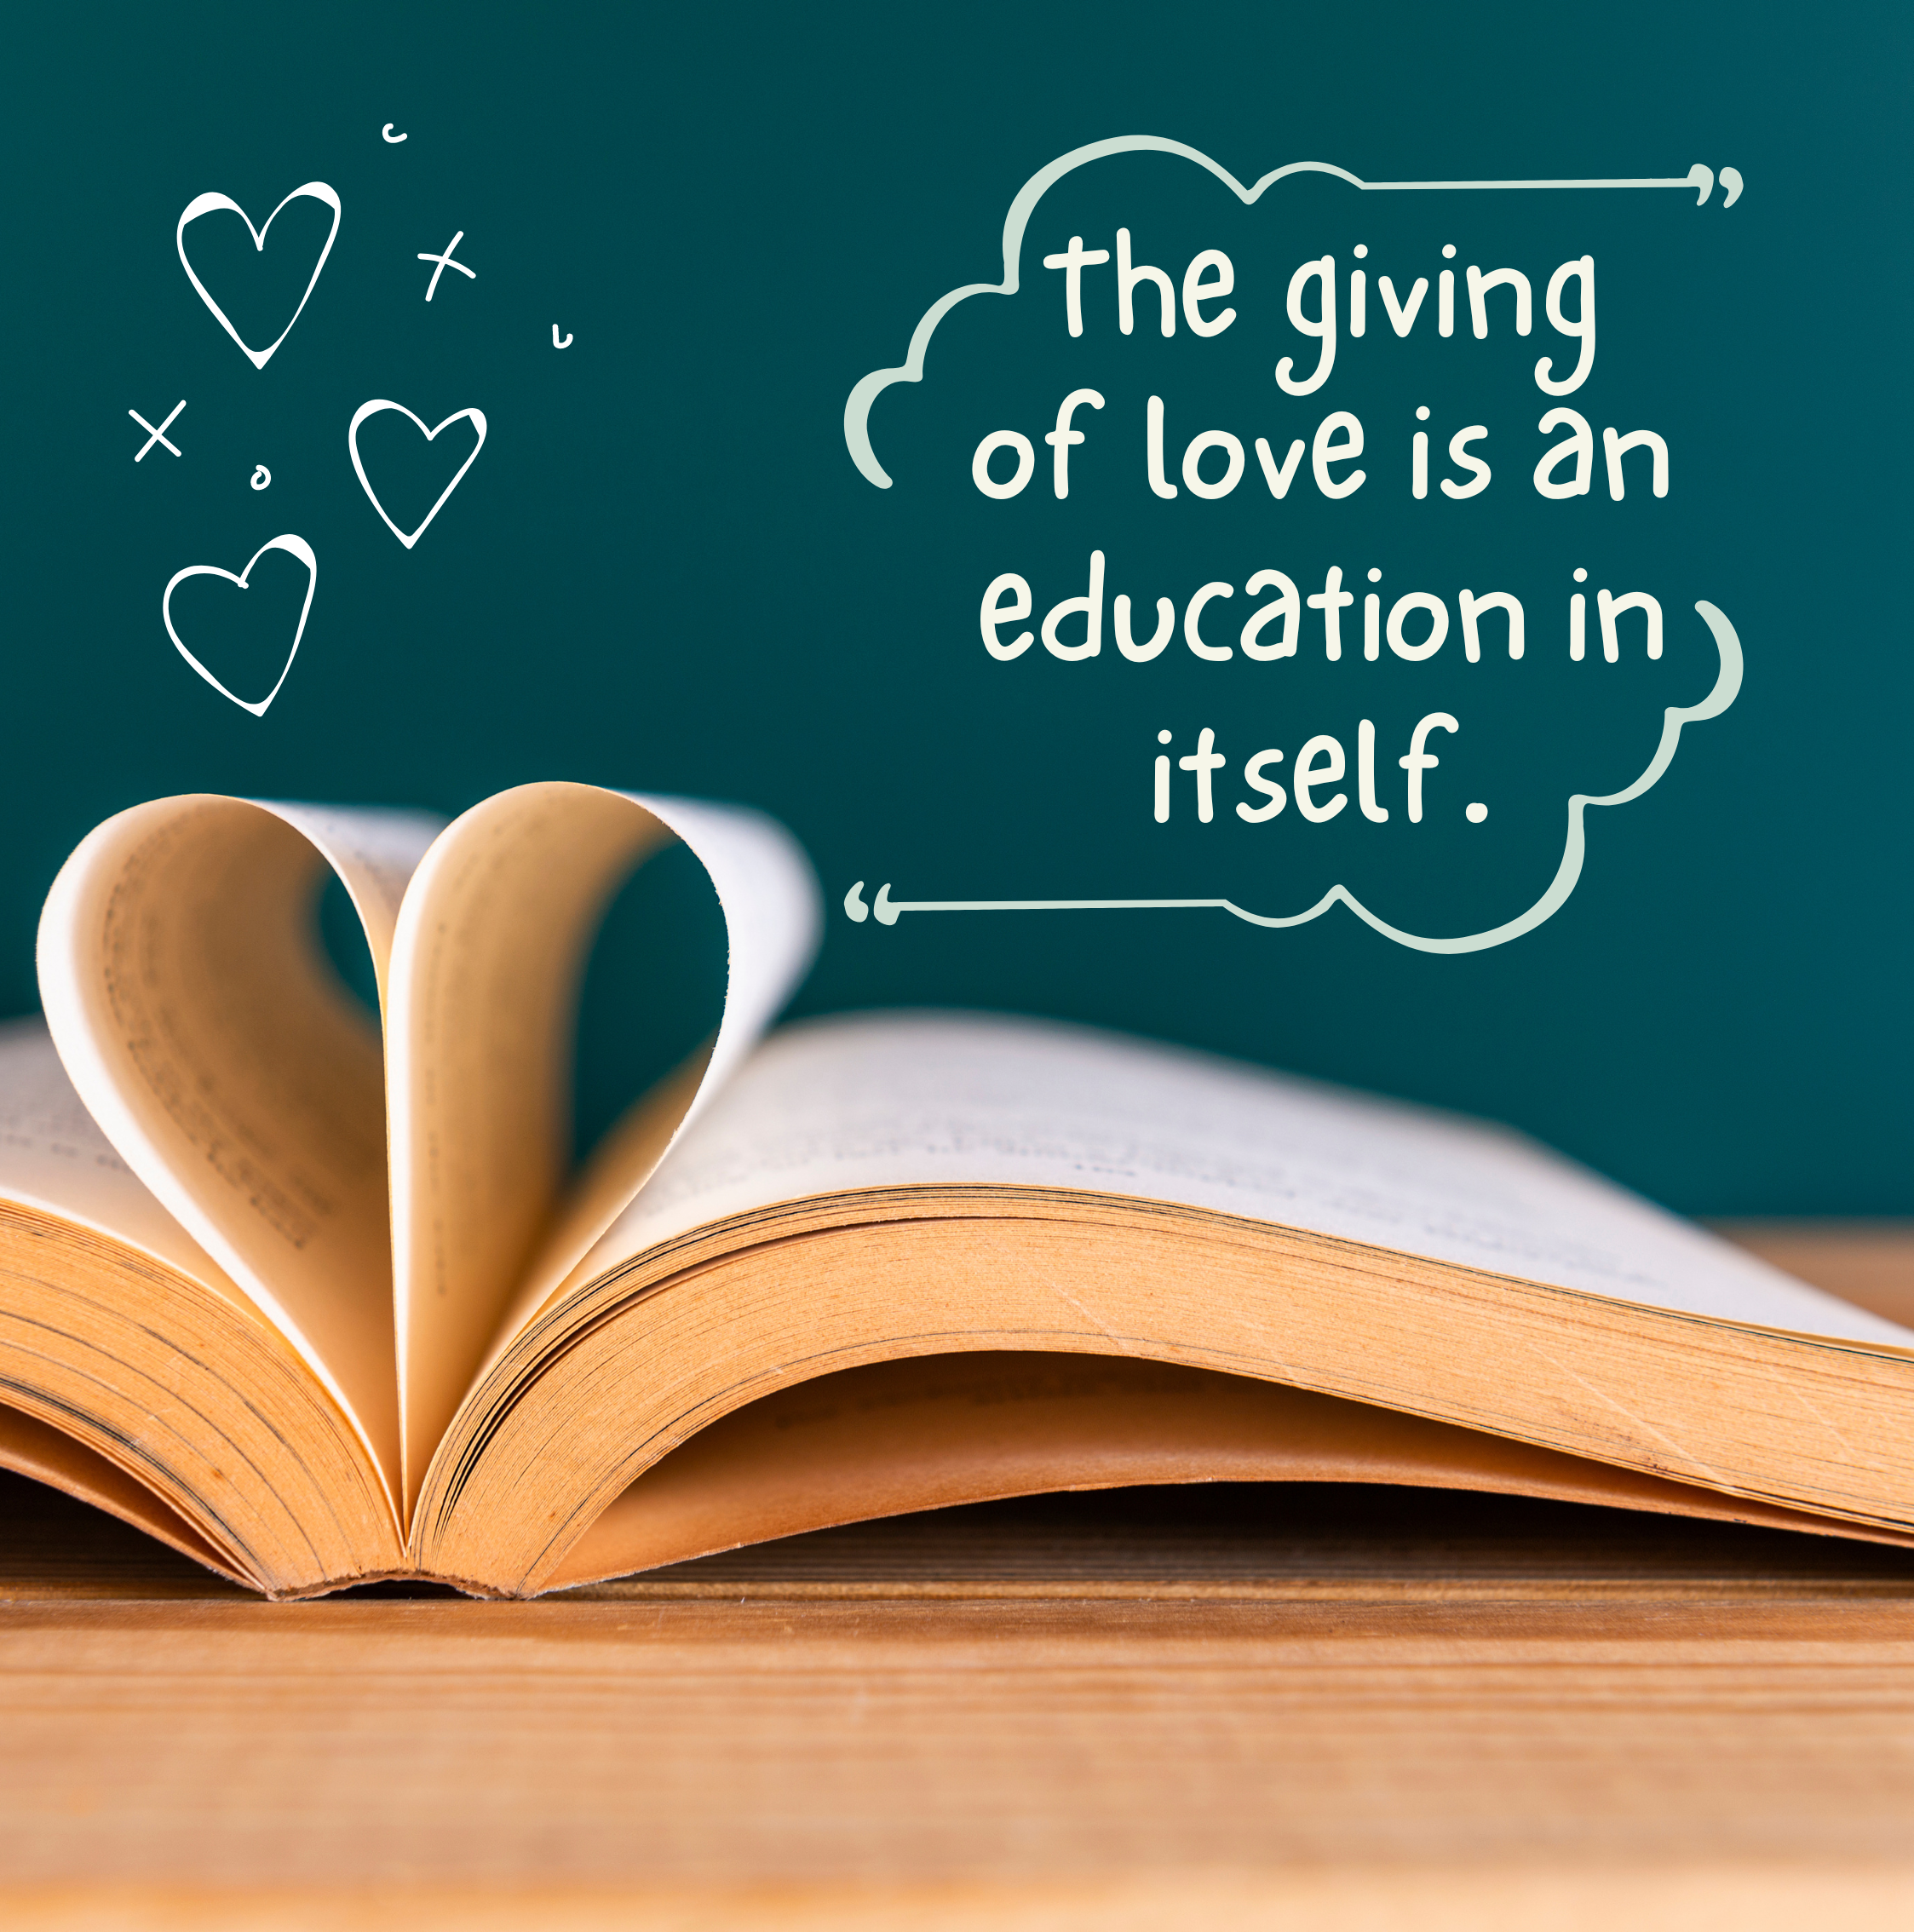 the giving
of love is an
education in
itself.